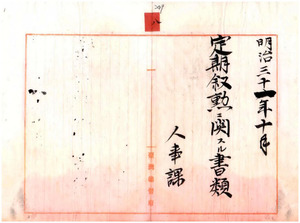 明治三十一年十月
定期叙勲ニ関スル書類
人事課